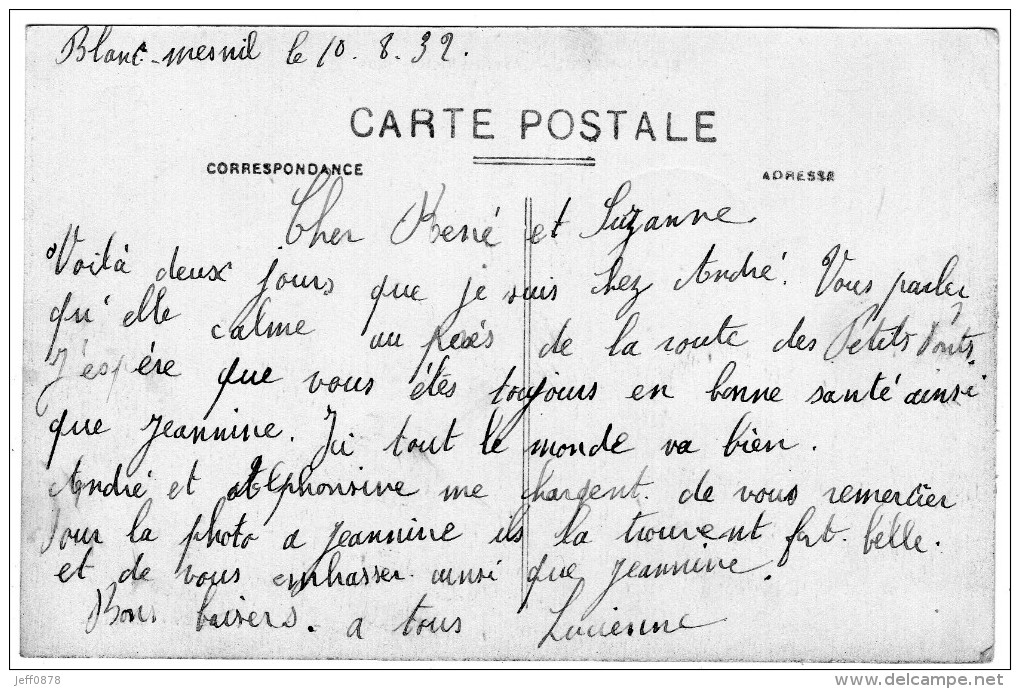 Blanc-mesnil le 10.8.32.
CARTE POSTALE
CORRESPONDANCE
ADRESSE
Cher René et Suzanne.
Voilà deux jours que je suis chez André. Vous parlez
qu'elle calme au près de la route des Petits Ponts.
J'espère que vous étes toujours en bonne santé ainsi
que Jeannine. Ici tout le monde va bien.
André et Alphonsine me chargent de vous remercier
pour la photo a Jeannine ils la trouvent fort belle.
et de vous embrasser ainsi que Jeannine.
Bons baisers. a tous Lucienne
jeff0878
www.delcampe.net